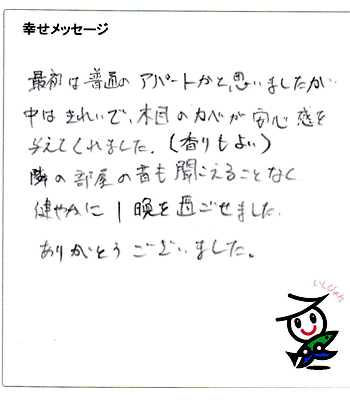 幸せメッセージ
最初は普通のアパートかと思いましたが
中はきれいで、木目のカベが安心感を
与えてくれました。(香りもよい)
隣の部屋の音も聞こえることなく
健やかに1晩を過ごせました。
ありがとうございました。
いしぴょん